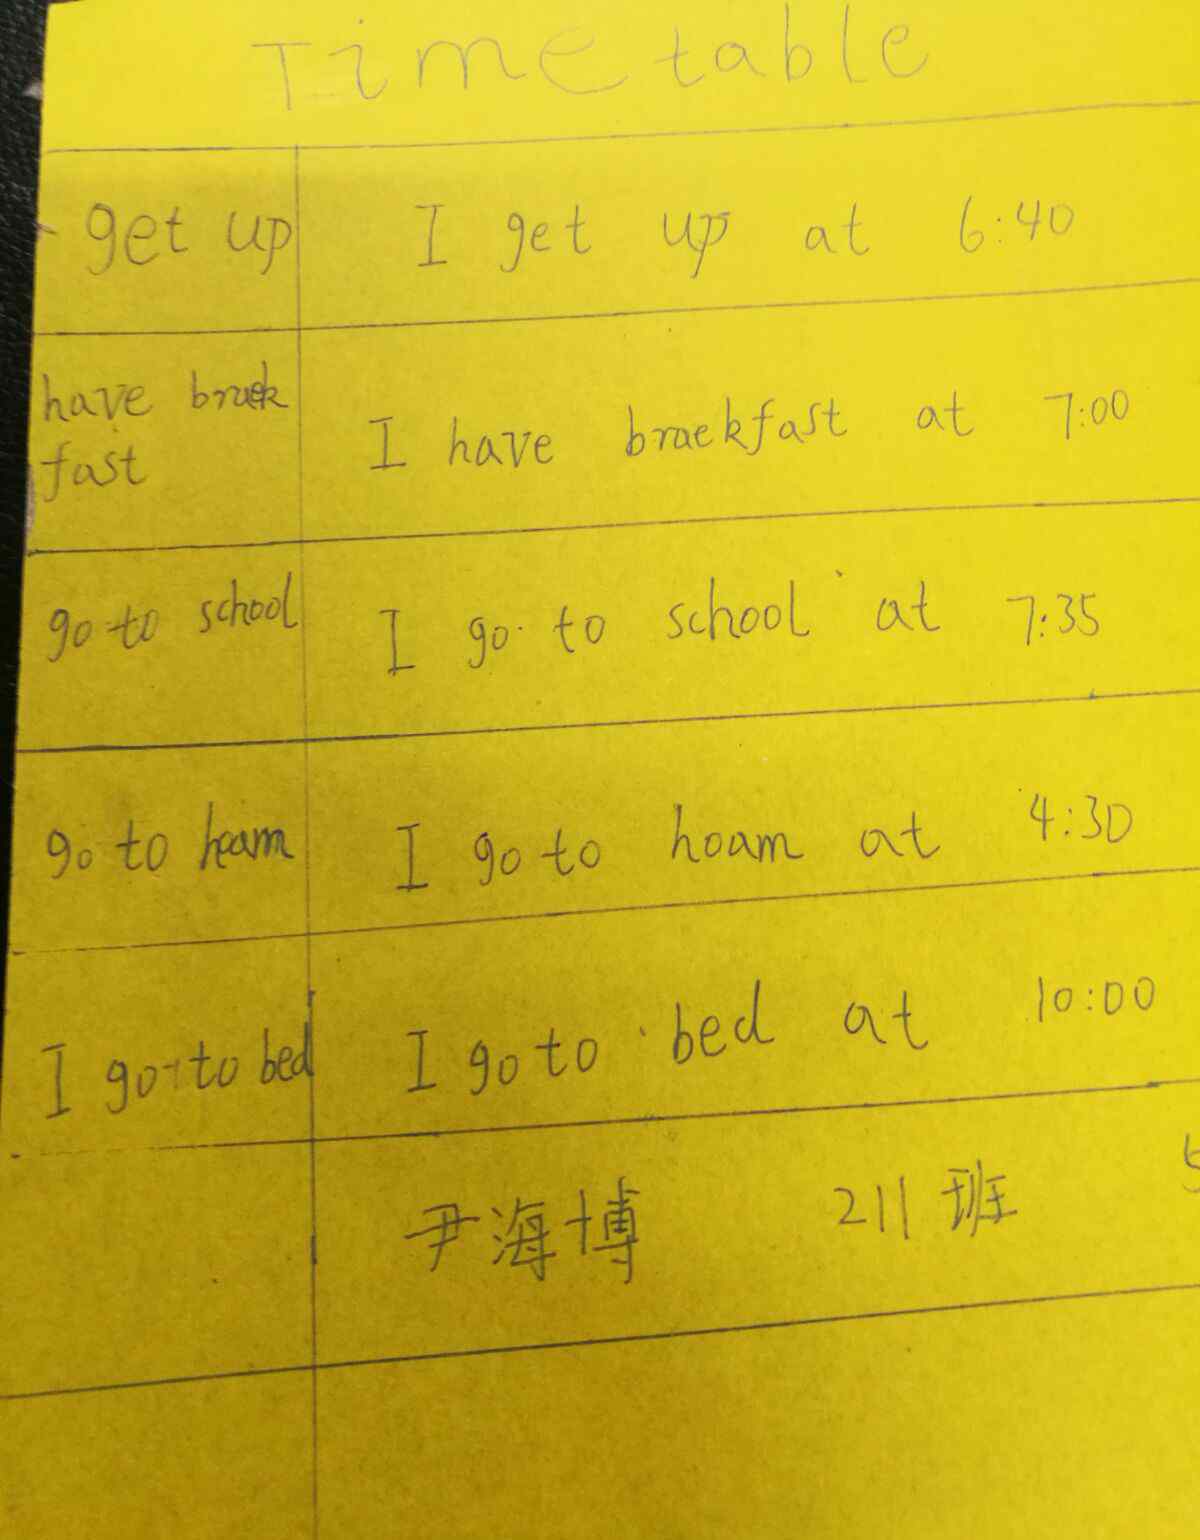 Timetable
get up I get up at 6:40
have braek
fast
I have braekfast at 7:00
go to school I go to school at 7:35
go to hoam I go to hoam at 4:30
I go to bed I go to bed at 10:00
尹海博 211班